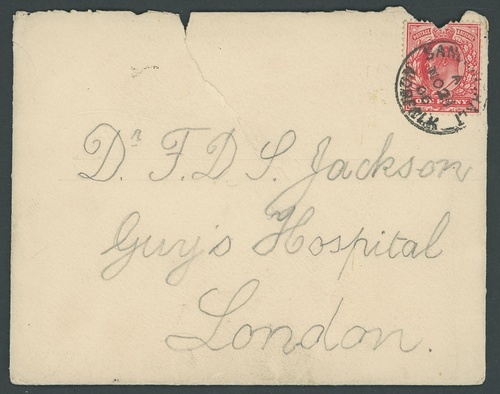 Dr F. D. S. Jackson
Guy's Hospital
London.
ONE PENNY
NORFOLK